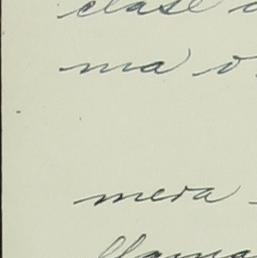 clase
ma o
mera -
llama